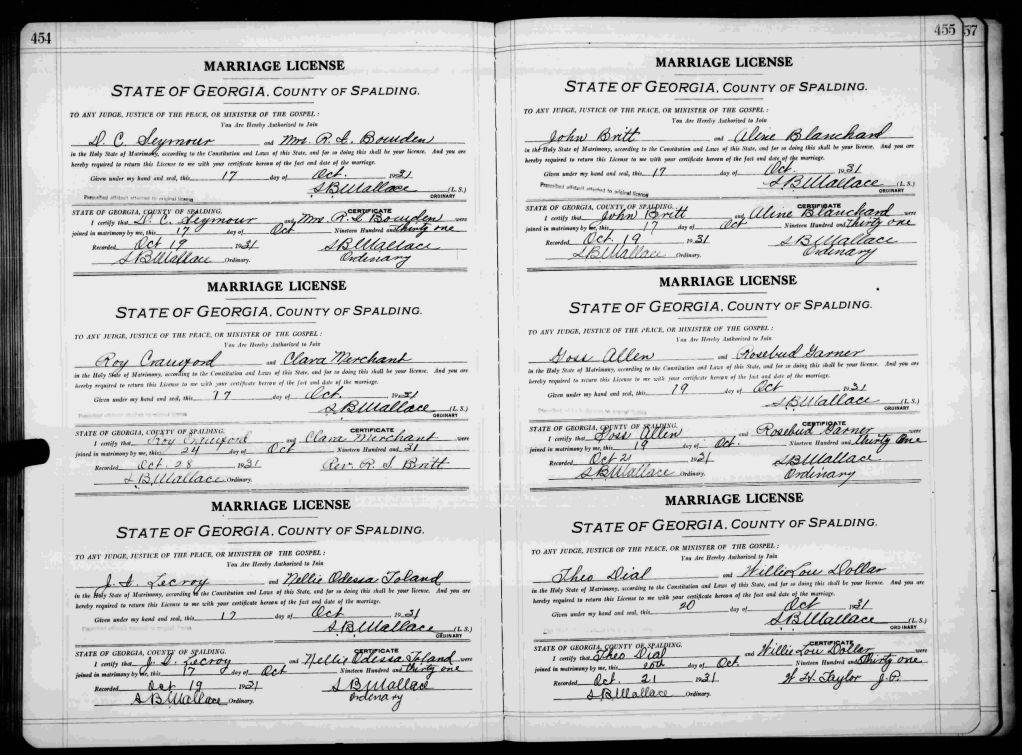 454
MARRIAGE LICENSE
STATE OF GEORGIA, COUNTY OF SPALDING.
TO ANY JUDGE, JUSTICE OF THE PEACE, OR MINISTER OF THE GOSPEL:
You Are Hereby Authorized to Join
D. C. Seymour and Mrs. R. L. Bowden
in the Holy State of Matrimony, according to the Constitution and Laws of this State, and for so doing this shall be your license. And you are
hereby required to return this License to me with your certificate hereon of the fact and date of the marriage.
Given under my hand and seal, this 17 day of Oct. 1931
S B Wallace (L. S.)
ORDINARY
Prescribed affidavit attached to original license
STATE OF GEORGIA, COUNTY OF SPALDING. CERTIFICATE
I certify that D. C. Seymour and Mrs. R. L. Bowden were
joined in matrimony by me, this 17 day of Oct Nineteen Hundred and thirty one
Recorded Oct 19 1931 S B Wallace
S B Wallace Ordinary. Ordinary
MARRIAGE LICENSE
STATE OF GEORGIA, COUNTY OF SPALDING.
TO ANY JUDGE, JUSTICE OF THE PEACE, OR MINISTER OF THE GOSPEL:
You Are Hereby Authorized to Join
Roy Crawford and Clara Merchant
in the Holy State of Matrimony, according to the Constitution and Laws of this State, and for so doing this shall be your license. And you are
hereby required to return this License to me with your certificate hereon of the fact and date of the marriage.
Given under my hand and seal, this 17 day of Oct. 1931
S B Wallace (L. S.)
ORDINARY
STATE OF GEORGIA, COUNTY OF SPALDING. CERTIFICATE
I certify that Roy Crawford and Clara Merchant were
joined in matrimony by me, this 24 day of Oct Nineteen Hundred and 31
Recorded Oct. 28 1931 Rev. R. S. Britt
S B Wallace Ordinary.
MARRIAGE LICENSE
STATE OF GEORGIA, COUNTY OF SPALDING.
TO ANY JUDGE, JUSTICE OF THE PEACE, OR MINISTER OF THE GOSPEL:
You Are Hereby Authorized to Join
J. D. Lecroy and Nellie Odessa Toland
in the Holy State of Matrimony, according to the Constitution and Laws of this State, and for so doing this shall be your license. And you are
hereby required to return this License to me with your certificate hereon of the fact and date of the marriage.
Given under my hand and seal, this 17 day of Oct 1931
S B Wallace (L. S.)
ORDINARY
STATE OF GEORGIA, COUNTY OF SPALDING. CERTIFICATE
I certify that J. D. Lecroy and Nellie Odessa Toland were
joined in matrimony by me, this 17 day of Oct Nineteen Hundred and thirty one
Recorded Oct 19 1931 S B Wallace
S B Wallace Ordinary. Ordinary
455 57
MARRIAGE LICENSE
STATE OF GEORGIA, COUNTY OF SPALDING.
TO ANY JUDGE, JUSTICE OF THE PEACE, OR MINISTER OF THE GOSPEL:
You Are Hereby Authorized to Join
John Britt and Aline Blanchard
in the Holy State of Matrimony, according to the Constitution and Laws of this State, and for so doing this shall be your license. And you are
hereby required to return this License to me with your certificate hereon of the fact and date of the marriage.
Given under my hand and seal, this 17 day of Oct. 1931
S B Wallace (L. S.)
ORDINARY
Prescribed affidavit attached to original license
STATE OF GEORGIA, COUNTY OF SPALDING. CERTIFICATE
I certify that John Britt and Aline Blanchard were
joined in matrimony by me, this 17 day of Oct Nineteen Hundred and thirty one
Recorded Oct. 19 1931 S B Wallace
S B Wallace Ordinary. Ordinary
MARRIAGE LICENSE
STATE OF GEORGIA, COUNTY OF SPALDING.
TO ANY JUDGE, JUSTICE OF THE PEACE, OR MINISTER OF THE GOSPEL:
You Are Hereby Authorized to Join
Goss Allen and Rosebud Garner
in the Holy State of Matrimony, according to the Constitution and Laws of this State, and for so doing this shall be your license. And you are
hereby required to return this License to me with your certificate hereon of the fact and date of the marriage.
Given under my hand and seal, this 19 day of Oct 1931
S B Wallace (L. S.)
ORDINARY
STATE OF GEORGIA, COUNTY OF SPALDING. CERTIFICATE
I certify that Goss Allen and Rosebud Garner were
joined in matrimony by me, this 19 day of Oct. Nineteen Hundred and thirty One
Recorded Oct 21 1931 S B Wallace
S B Wallace Ordinary. Ordinary
MARRIAGE LICENSE
STATE OF GEORGIA, COUNTY OF SPALDING.
TO ANY JUDGE, JUSTICE OF THE PEACE, OR MINISTER OF THE GOSPEL:
You Are Hereby Authorized to Join
Theo Dial and Willie Lou Dollar
in the Holy State of Matrimony, according to the Constitution and Laws of this State, and for so doing this shall be your license. And you are
hereby required to return this License to me with your certificate hereon of the fact and date of the marriage.
Given under my hand and seal, this 20 day of Oct 1931
S B Wallace (L. S.)
ORDINARY
STATE OF GEORGIA, COUNTY OF SPALDING. CERTIFICATE
I certify that Theo Dial and Willie Lou Dollar were
joined in matrimony by me, this 20th day of Oct Nineteen Hundred and thirty one
Recorded Oct. 21 1931 W. H. Taylor J. P.
S B Wallace Ordinary.